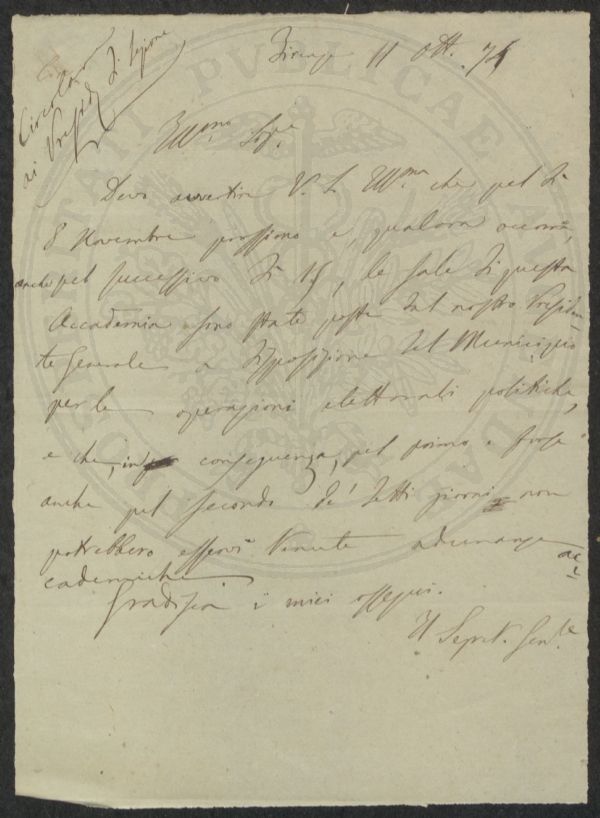 Circolare
ai Presid. di Sezione
Firenze 11 Ott. 74
Ill.mo Sig.e
Devo avvertire V. S. Ill.ma che pel dì
8 Novembre prossimo e qualora occorra,
anche pel successivo dì 15, le sale di questa
Accademia sono state poste dal nostro Presiden-
te Generale a disposizione del Municipio
per le operazioni elettorali politiche,
e che, in conseguenza, pel primo e forse
anche pel secondo de' detti giorni non
potrebbero esservi tenute adunanze ac-
cademiche.
Gradisca i miei ossequi.
Il Segret. Gen.le
PUBLICAE